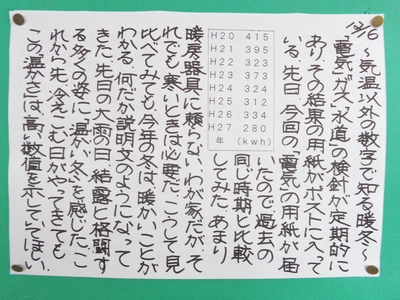 12/6 ～気温以外の数字で知る暖冬～
「電気」「ガス」「水道」の検針が定期的に
あり、その結果の用紙がポストに入って
いる。先日、今回の「電気」の用紙が届
いたので、過去の
同じ時期と比較
してみた。あまり
H20 415
H21 395
H22 323
H23 327
H24 325
H25 312
H26 334
H27 280
年 (kwh)
暖房器具に頼らないわが家だが、そ
れでも、寒いときは必要だ。こうして見
比べてみても、今年の冬は、暖かいことが
わかる。何だか説明文のようになって
きた。先日の大雨の日、結露と格闘す
る多くの姿に「温かい冬」を感じた。こ
れから先、冷えこむ日がやってきても
この「温かさ」は、高い数値を示していてほしい。